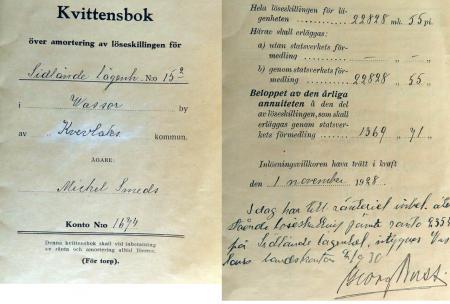 Kvittensbok
över amortering av löseskillingen för
Sidlände lägenh. N:o 15²
i Wassor by
av Kvevlaks kommun.
ÄGARE:
Michel Smeds
Konto N:o 1674
Denna kvittensbok skall vid inbetalning
av ränta och amortering alltid företes.
(För torp.)
Hela löseskillingen för lä-
genheten 22828 mk. 55 pi.
Härav skall erläggas:
a) utan statsverkets för-
medling — „ — „
b) genom statsverkets för-
medling 22828 „ 55 „
Beloppet av den årliga
annuiteten å den del
av löseskillingen, som skall
erläggas genom statsver-
kets förmedling 1369 „ 71 „
Inlösningsvillkoren hava trätt i kraft
den 1 november 1928.
I dag har till ränteriet inbet. åter
stående löseskilling jämte ränta
på Sidlände lägenhet, intygas
landskontor 1930
Georg